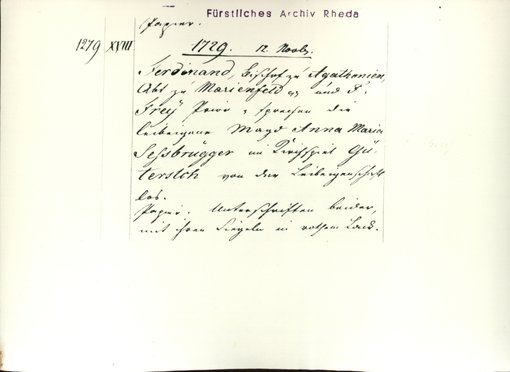 Fürstliches Archiv Rheda
Papier.
1279 XXIII
1729. 12. Novbr.
Ferdinand, Bischof zu Agathonien,
Abt zu Marienfeld und F.
Frey Prior, sprechen die
leibeigene Magd Anna Maria
Sessbrügger im Kirchspiel Gü-
tersloh von der Leibeigenschaft
los.
Papier. Unterschriften beider,
mit ihren Siegeln in rothem Lack.